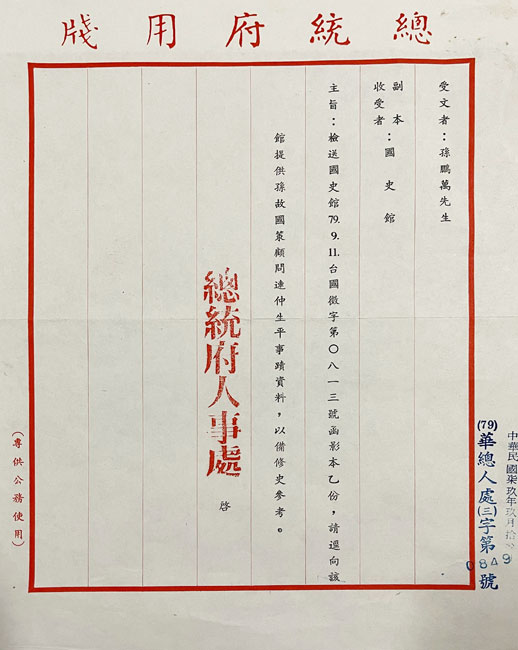 總統府用牋
中華民國柒玖年玖月拾
(79)華總人處(三)字第0849號
受文者：孫鵬萬先生
副本收受者：國史館
主旨：檢送國史館79.9.11.台國徵字第〇八一三號函影本乙份，請逕向該
館提供孫故國策顧問連仲生平事蹟資料，以備修史參考。
總統府人事處 啓
（專供公務使用）